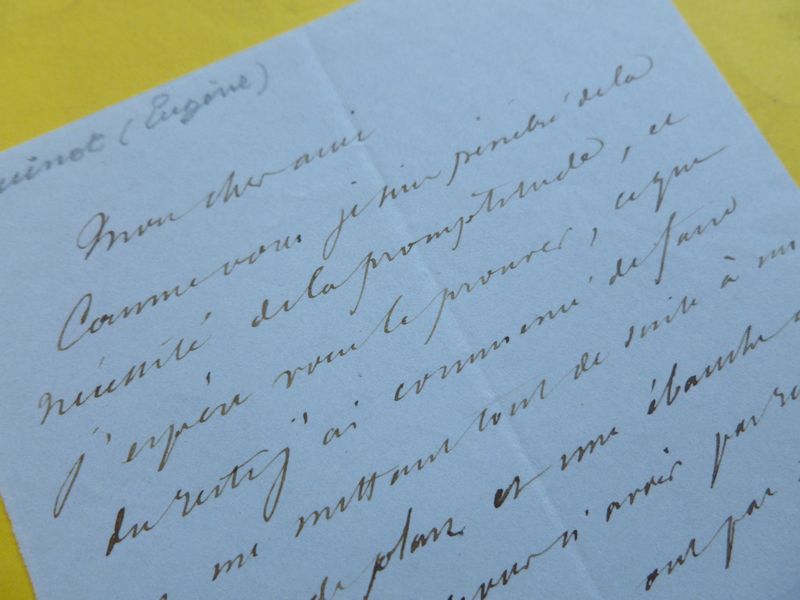 uinot (Eugène)
Mon cher ami
Comme vous je suis pénétré de la
nécessité de la promptitude, et
j'espère vous le prouver, ce que
du reste j'ai commencé de faire
me mettant tout de suite à
de plan et une ébauche
avoir
ont par